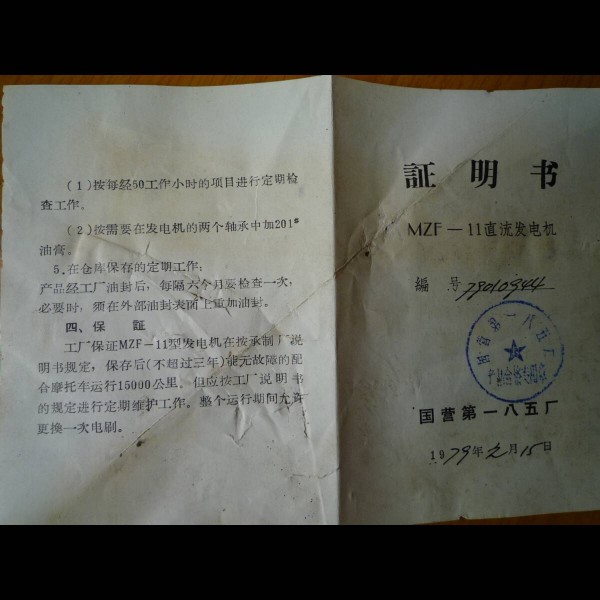 (1)按每经50工作小时的项目进行定期检
查工作。
(2)按需要在发电机的两个轴承中加201#
油膏。
5.在仓库保存的定期工作：
产品经工厂油封后，每隔六个月要检查一次，
必要时，须在外部油封表面上重加油封。
四、保 証
工厂保证MZF－11型发电机在按承制厂说
明书规定，保存后(不超过三年)能无故障的配
合摩托车运行15000公里。但应按工厂说明书
的规定进行定期维护工作。整个运行期间允许
更换一次电刷。
証明书
MZF－11直流发电机
编 号 79010944
国营第一八五厂
国营第一八五厂
1979年 月15日